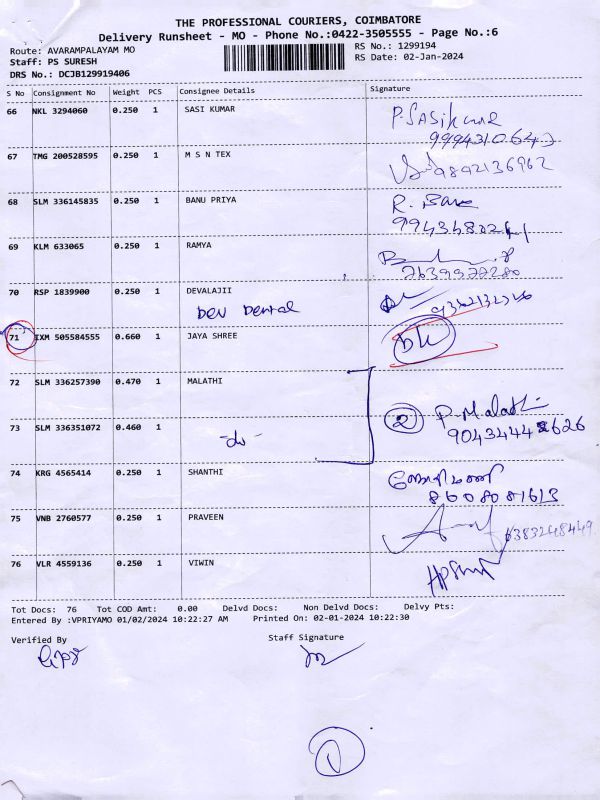 THE PROFESSIONAL COURIERS, COIMBATORE
Delivery Runsheet - MO - Phone No.:0422-3505555 - Page No.:6
Route: AVARAMPALAYAM MO
Staff: PS SURESH
DRS No.: DCJB129919406
RS No.: 1299194
RS Date: 02-Jan-2024
S No Consignment No Weight PCS Consignee Details Signature
66 NKL 3294060 0.250 1 SASI KUMAR
P. SASikumar
67 TMG 200528595 0.250 1 M S N TEX
9892136962
68 SLM 336145835 0.250 1 BANU PRIYA
R. Banu
69 KLM 633065 0.250 1 RAMYA
70 RSP 1839900 0.250 1 DEVALAJII
Dev Dental
71 IXM 505584555 0.660 1 JAYA SHREE
DK
72 SLM 336257390 0.470 1 MALATHI
2 P. Malathi
73 SLM 336351072 0.460 1
-do-
74 KRG 4565414 0.250 1 SHANTHI
8608081613
75 VNB 2760577 0.250 1 PRAVEEN
6383248449
76 VLR 4559136 0.250 1 VIWIN
Tot Docs: 76 Tot COD Amt: 0.00 Delvd Docs: Non Delvd Docs: Delvy Pts:
Entered By :VPRIYAMO 01/02/2024 10:22:27 AM Printed On: 02-01-2024 10:22:30
Verified By Staff Signature